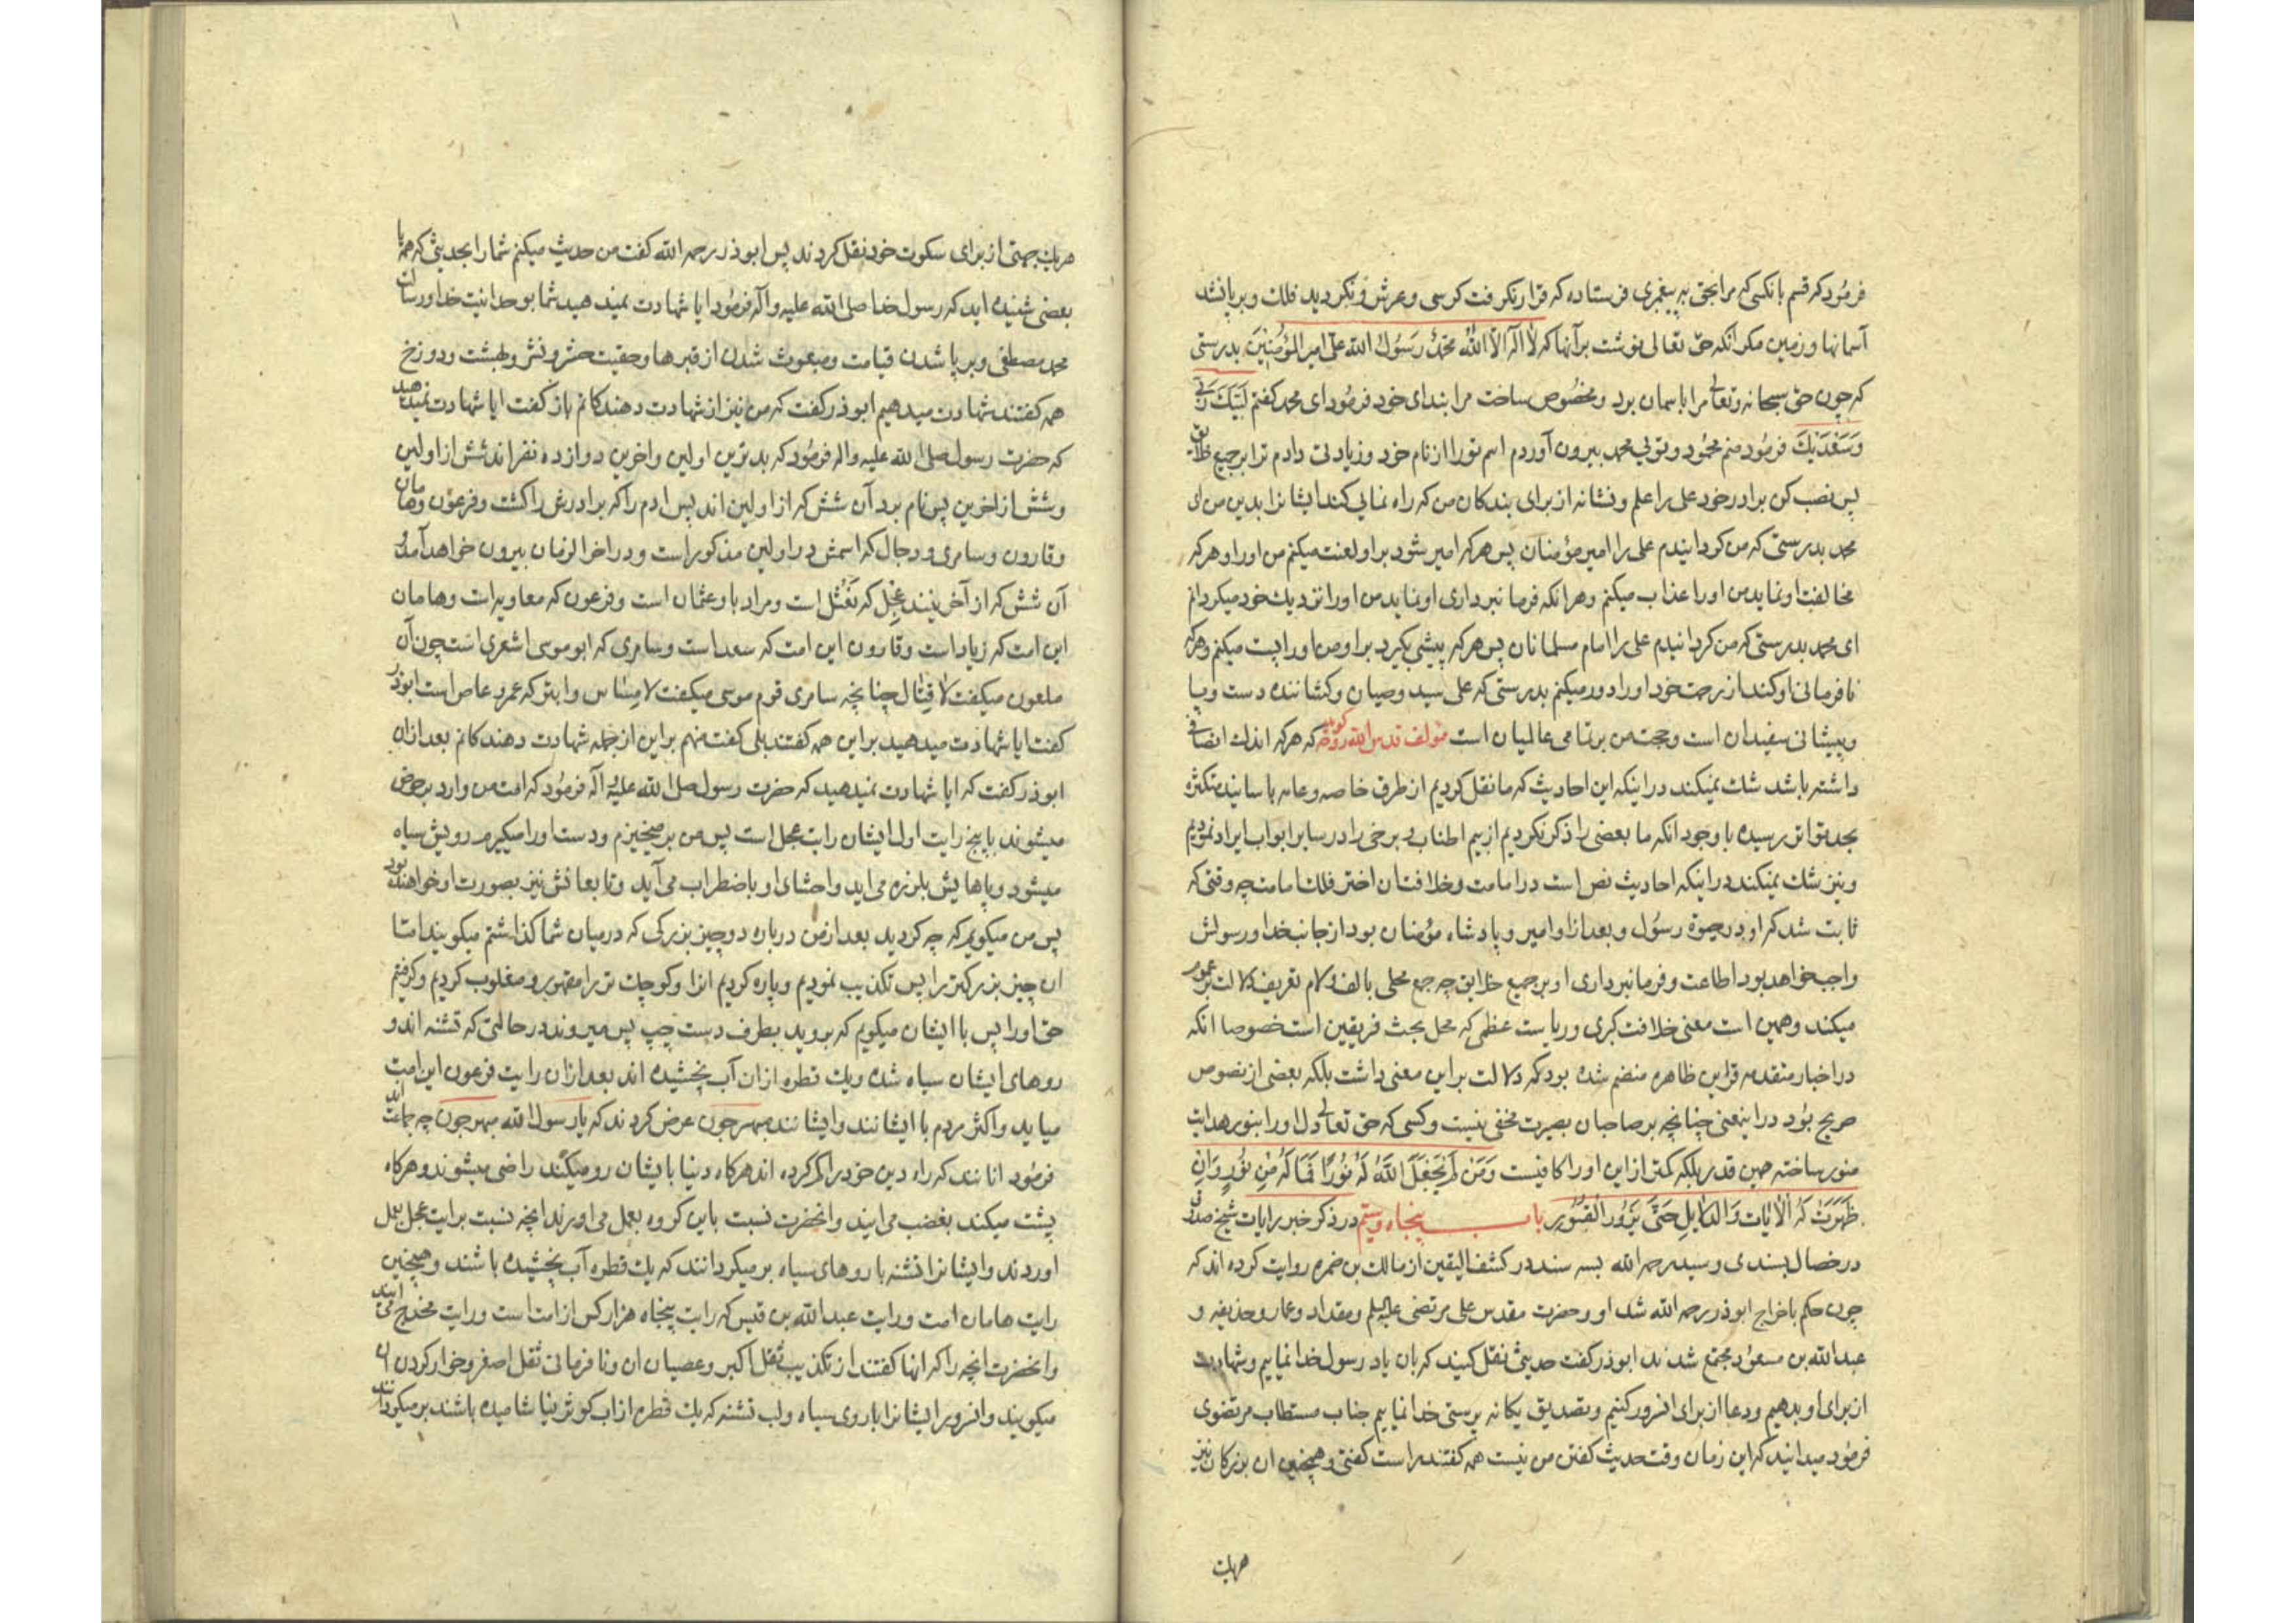 فرمود که قسم بانکسی که مرا بحق به پیغمبری فرستاده که قرار نکرفت کرسی و عرش و نکردید فلک و برپا نشد
آسمانها و زمین مکر انکه حق تعالی نوشت بر آنها که لا اله الا الله محمد رسول الله علی امیر المؤمنین بدرستی
که چون حق سبحانه و تعالی مرا باسمان برد و مخصوص ساخت مرا بندای خود فرمود ای محمد کفتم لبیک ربی
وسعدیک فرمود منم محمود و تویی محمد بیرون آوردم اسم تو را از نام خود و زیادتی دادم ترا بر جمیع خلایق
پس نصب کن برادر خود علی را علم و نشانه از برای بندکان من که راه نمایی کند ایشانرا بدین من ای
محمد بدرستی که من کردانیدم علی را امیر مؤمنان پس هرکه امیر شود بر او لعنت میکنم من او را و هرکه
مخالفت او نماید من او را عذاب میکنم و هر انکه فرمانبرداری او نماید من او را نزدیک خود میکردانم
ای محمد بدرستی که من کردانیدم علی را امام مسلمانان پس هرکه پیشی بکیرد بر او من او را پست میکنم و هرکه
نافرمانی او کند از رحمت خود او را دور میکنم بدرستی که علی سید وصیان و کشاننده دست و پا
و پیشانی سفیدان است و حجت من بر تمامی عالمیان است مؤلف قدس الله روحه کوید که هرکه اندک انصافی
داشته باشد شک نمیکند در اینکه این احادیث که ما نقل کردیم از طرق خاصه و عامه با سانید متکثره
بحد تواتر رسیده با وجود انکه ما بعضی را ذکر نکردیم از بیم اطناب و برخی را در سایر ابواب ایراد نمودیم
و نیز شک نمیکند در اینکه احادیث نص است در امامت و خلافت ان اختر فلک امامت چه وقتی که
ثابت شد که او در حیوة رسول و بعد از او امیر و پادشاه مؤمنان بود از جانب خدا و رسولش
واجب خواهد بود اطاعت و فرمانبرداری او بر جمیع خلایق چه جمع محلی بالف و لام تعریف دلالت بر عموم
میکند و همین است معنی خلافت کبری و ریاست عظمی که محل بحث فریقین است خصوصا انکه
در اخبار متقدمه قراین ظاهره منضم شده بود که دلالت بر این معنی داشت بلکه بعضی از نصوص
صریح بود در اینمعنی چنانچه بر صاحبان بصیرت مخفی نیست و کسی که حق تعالی دل او را بنور هدایت
منور ساخته همین قدر بلکه کمتر از این او را کافیست ومن لم یجعل الله له نورا فما له من نور وان
ظهرت له الایات والدلایل حتی یزور القبور باب پنجاه و ستم در ذکر خبر رایات شیخ صدوق
در خصال بسندی و سید رحمه الله بسه سند در کشف الیقین از مالک بن ضمره روایت کرده اند که
چون حکم باخراج ابوذر رحمه الله شد او و حضرت مقدس علی مرتضی علیه السلم و مقداد و عمار و حذیفه و
عبد الله بن مسعود مجتمع شدند ابوذر کفت حدیثی نقل کنید که بان یاد رسول خدا نماییم و شهادت
از برای او بدهیم و دعا از برای انسرور کنیم و تصدیق یکانه پرستی خدا نماییم جناب مستطاب مرتضوی
فرمود میدانید که این زمان وقت حدیث کفتن من نیست همه کفتند راست کفتی و همچنین ان بزرکان نیز
هریک
هریک جهتی از برای سکوت خود نقل کردند پس ابوذر رحمه الله کفت من حدیث میکنم شما را بحدیثی که همه یا
بعضی شنیده اید که رسول خدا صلی الله علیه و آله فرمود ایا شهادت نمیدهید شما بوحدانیت خدا و رسالت
محمد مصطفی و برپا شدن قیامت و مبعوث شدن از قبرها و حقیت حشر و نشر و بهشت و دوزخ
همه کفتند شهادت میدهیم ابوذر کفت که من نیز از شهادت دهندکانم باز کفت ایا شهادت نمیدهید
که حضرت رسول صلی الله علیه و اله فرمود که بدترین اولین و اخرین دوازده نفراند شش از اولین
و شش از اخرین پس نام برد آن شش که از اولین اند پسر ادم را که برادرش را کشت و فرعون و هامان
و قارون و سامری و دجال که اسمش در اولین مذکور است و در اخر الزمان بیرون خواهد آمد و
آن شش که از آخرینند عجل که نعثل است و مراد باو عثمان است و فرعون که معاویه است و هامان
این امت که زیاد است و قارون این امت که سعد است و سامری که ابو موسی اشعری است چون آن
ملعون میکفت لا قتال چنانچه سامری قوم موسی میکفت لا مساس و ابتر که عمرو عاص است ابوذر
کفت ایا شهادت میدهید بر این همه کفتند بلی کفت منهم بر این از جمله شهادت دهندکانم بعد ازان
ابوذر کفت که ایا شهادت نمیدهید که حضرت رسول صلی الله علیه و آله فرمود که امت من وارد بر حوض
میشوند با پنج رایت اول ایشان رایت عجل است پس من بر میخیزم و دست او را میکیرم رویش سیاه
میشود و پاهایش بلرزه می اید و احشای او باضطراب می آید و تابعانش نیز بصورت او خواهند بود
پس من میکویم که چه کردید بعد از من درباره دو چیز بزرکی که در میان شما کذاشتم میکویند اما
ان چیز بزرکتر را پس تکذیب نمودیم و پاره کردیم انرا و کوچک تر را مقهور و مغلوب کردیم و کرفتیم
حق او را پس با ایشان میکویم که بروید بطرف دست چپ پس میروند در حالتی که تشنه اند و
روهای ایشان سیاه شده و یک قطره ازان آب نچشیده اند بعد ازان رایت فرعون این امت
میاید و اکثر مردم با ایشانند و ایشانند مبهرجون عرض کردند که یا رسول الله مبهرجون چه جماعت اند
فرمود انانند که راه دین خود را کم کرده اند هرکاه دنیا بایشان رو میکند راضی میشوند و هرکاه
پشت میکند بغضب می ایند و انحضرت نسبت باین کروه بعمل می اورند انچه نسبت برایت عجل بعمل
اوردند و ایشانرا تشنه با روهای سیاه بر میکردانند که یک قطره آب نچشیده باشند و همچنین
رایت هامان امت و رایت عبد الله بن قیس که رایت پنجاه هزار کس از امت است و رایت مخدج می ایند
و انحضرت انچه را که انها کفتند از تکذیب ثقل اکبر و عصیان ان و نافرمانی ثقل اصغر و خوار کردن ان
میکویند و انسرور ایشانرا با روی سیاه و لب تشنه که یک قطره از اب کوثر نیاشامیده باشند بر میکردانند